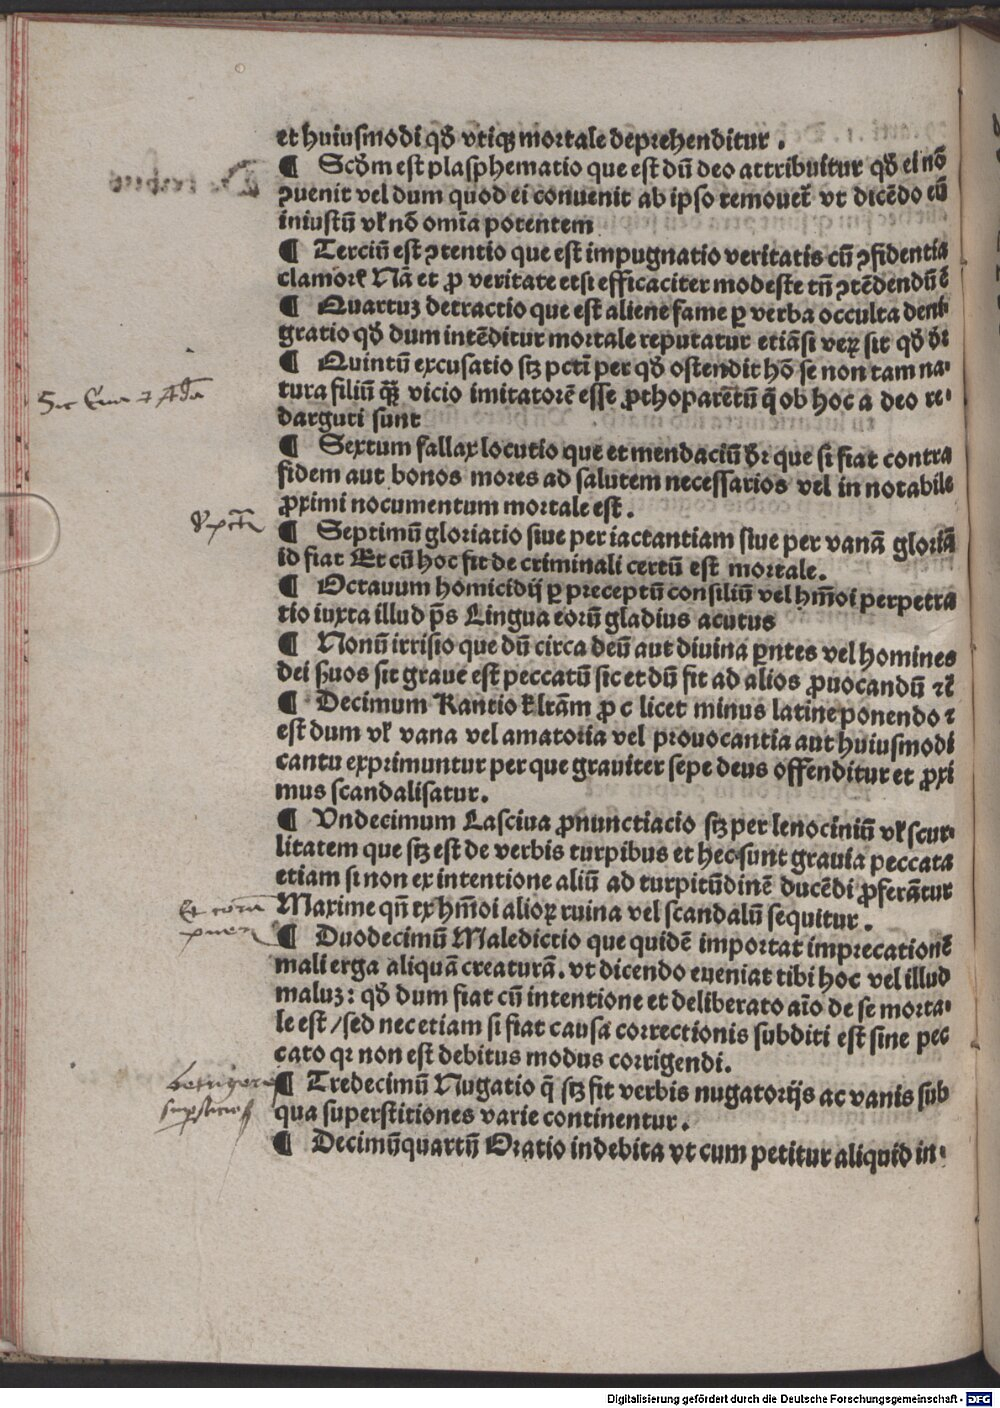 et huiusmodi qď vtiqꝫ mortale deprehenditur .
¶ Scďm est plasphematio que est dū deo attribuitur qď ei nō
ꝯuenit vel dum quod ei conuenit ab ipso remouet̄ vt dicēdo eū
iniustū vl̓ nō om̄ia potentem
¶ Terciū est ꝯtentio que est impugnatio veritatis cū ꝯfidentia
clamorꝭ Nā et ꝓ veritate etsi efficaciter modeste tn̄ ꝯtēdendū ē
¶ Quartuꝫ detractio que est aliene fame ꝑ verba occulta deni-
gratio qď dum intēditur mortale reputatur etiāsi veꝝ sit qď dr̄
¶ Quintū excusatio stꝫ pctī per qď ostendit hō se non tam na-
tura filiū q̄ꝫ vicio imitatorē esse ꝓthoparētū q̄ ob hoc a deo re-
darguti sunt
¶ Sextum fallax locutio que et mendaciū dr̄ que si fiat contra
fidem aut bonos mores ad salutem necessarios vel in notabile
ꝓximi nocumentum mortale est .
¶ Septimū gloriatio siue per iactantiam siue per vanā gloriā
id fiat Et cū hoc fit de criminali certū est mortale.
¶ Octauum homicidij ꝑ preceptū consiliū vel hm̄oi perpetra
tio iuxta illud p̄s Lingua eorū gladius acutus
¶ Nonū irrisio que dū circa deū aut diuina ꝑntes vel homines
dei ẜuos sit graue est peccatū sic et dū fit ad alios ꝓuocandū ⁊c̄
¶ Decimum Kantio k̓ lr̄am ꝓ c licet minus latine ponendo ⁊
est dum vl̓ vana vel amatoria vel prouocantia aut huiusmodi
cantu exprimuntur per que grauiter sepe deus offenditur et ꝓxi
mus scandalisatur.
¶ Vndecimum Lasciua ꝓnunctiacio stꝫ per lenociniū vl̓ scur-
litatem que stꝫ est de verbis turpibus et hec sunt grauia peccata
etiam si non ex intentione aliū ad turpitūdinē ducēdi ꝓferātur
Maxime qn̄ ex hm̄oi alioꝝ ruina vel scandalū sequitur .
¶ Duodecimū Maledictio que quidē importat imprecationē
mali erga aliquā creaturā. vt dicendo eueniat tibi hoc vel illud
maluꝫ: qď dum fiat cū intentione et deliberato aīo de se morta-
le est / sed nec etiam si fiat causa correctionis subditi est sine pec
cato qꝛ non est debitus modus corrigendi.
¶ Tredecimū Nugatio q̄ stꝫ fit verbis nugatorijs ac vanis sub
qua superstitiones varie continentur.
¶ Decimūquartū Oratio indebita vt cum petitur aliquid in-
Sic Eua ⁊ Adā
Et coram
Digitalisierung gefördert durch die Deutsche Forschungsgemeinschaft - DFG